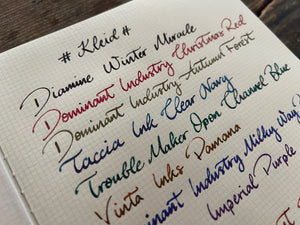 # Kleid #
Diamine Winter Miracle
Dominant Industry Christmas Red
Dominant Industry Autumn Forest
Taccia Ink Clear Navy
Trouble Maker Open Channel Blue
Vinta Inks Pamana
inant Industry Milky Way
Imperial Purple